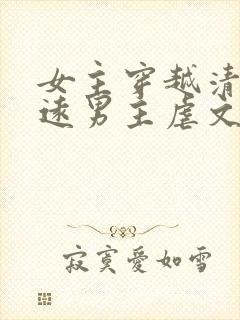 女主穿越清
速男主虐文
寂寞爱如雪